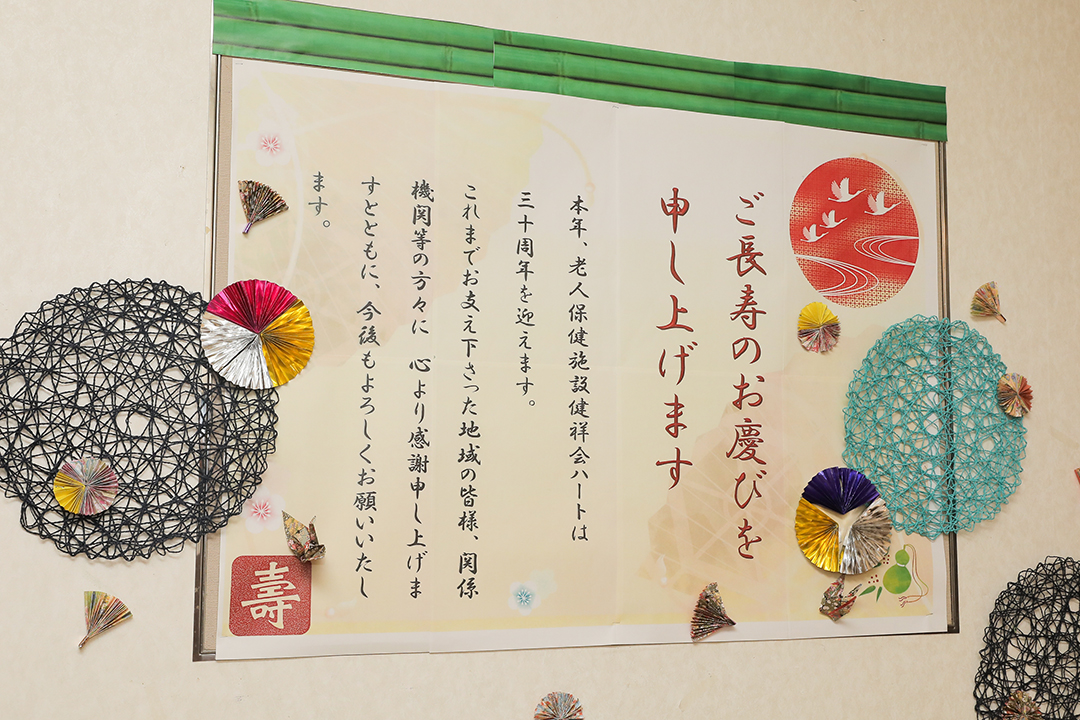 ご長寿のお慶びを
申し上げます
本年、老人保健施設健祥会ハートは
三十周年を迎えます。
これまでお支え下さった地域の皆様、関係
機関等の方々に　心より感謝申し上げま
すとともに、今後もよろしくお願いいたし
ます。
壽